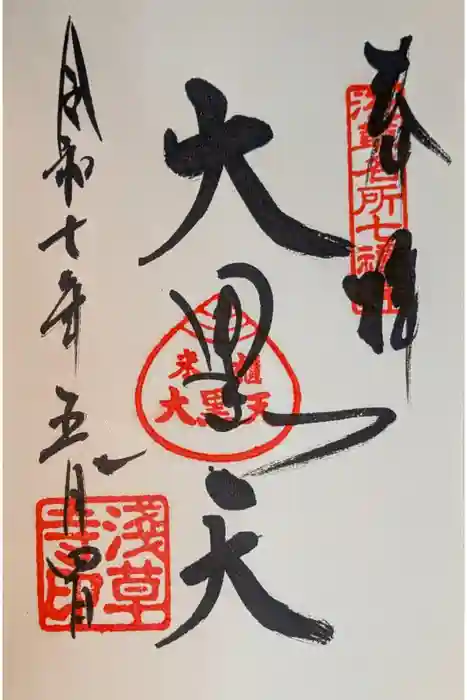 奉拝
浅草名所七福神
大黒天
米櫃
大黒天
令和七年五月四日
浅草寺印